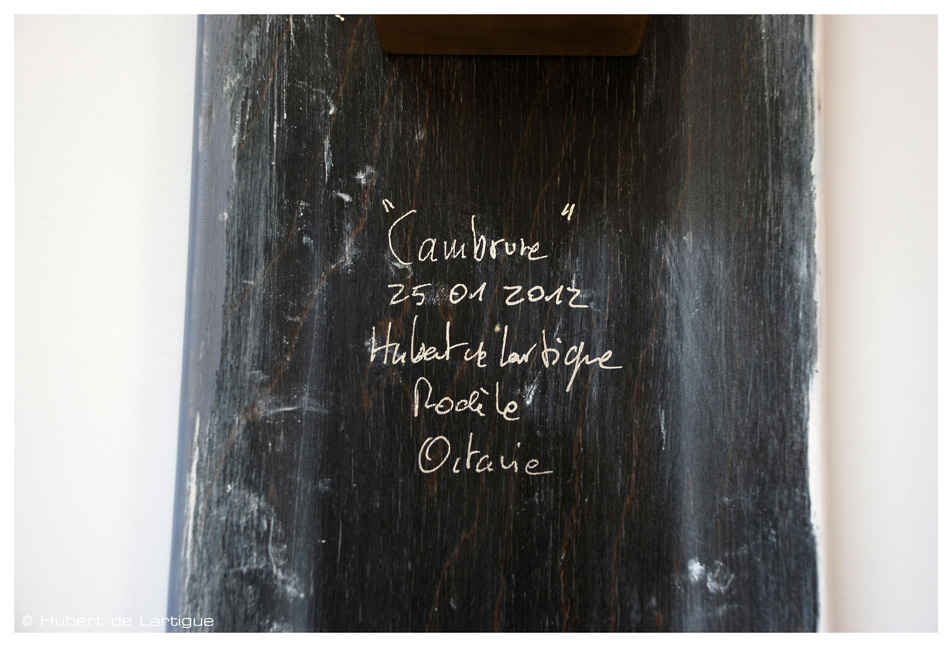 "Cambrure"
25 01 2012
Hubert de Lartigue
Modèle
Octavie
© Hubert de Lartigue